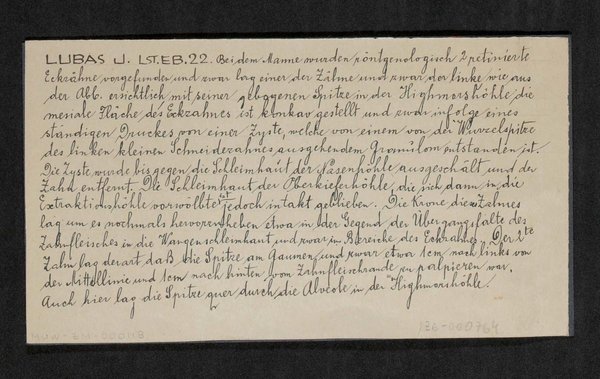 LUBAS J. LST.EB.22. Bei dem Manne wurden röntgenologisch 2 retinierte
Eckzähne vorgefunden und zwar lag einer der Zähne und zwar der linke wie aus
der Abb. ersichtlich mit seiner gebogenen Spitze in der Highmorshöhle, die
mesiale Fläche des Eckzahnes ist konkav gestellt und zwar infolge eines
ständigen Druckes von einer Zyste, welche von einem von der Wurzelspitze
des linken kleinen Schneidezahnes ausgehendem Granulom entstanden ist.
Die Zyste wurde bis gegen die Schleimhaut der Nasenhöhle ausgeschält und der
Zahn entfernt. Die Schleimhaut der Oberkieferhöhle, die sich dann in die
Extraktionshöhle vorwölbte ist jedoch intakt geblieben. Die Krone dieses Zahnes
lag um es nochmals hervorzuheben etwa in der Gegend der Übergangsfalte des
Zahnfleisches in die Wangenschleimhaut und zwar im Bereiche des Eckzahnes. Der 2te
Zahn lag derart, daß die Spitze am Gaumen und zwar etwa 1cm nach links von
der Mittellinie und 1cm nach hinten vom Zahnfleischrande zu palpieren war.
Auch hier lag die Spitze quer durch die Alveole in der Highmorshöhle.